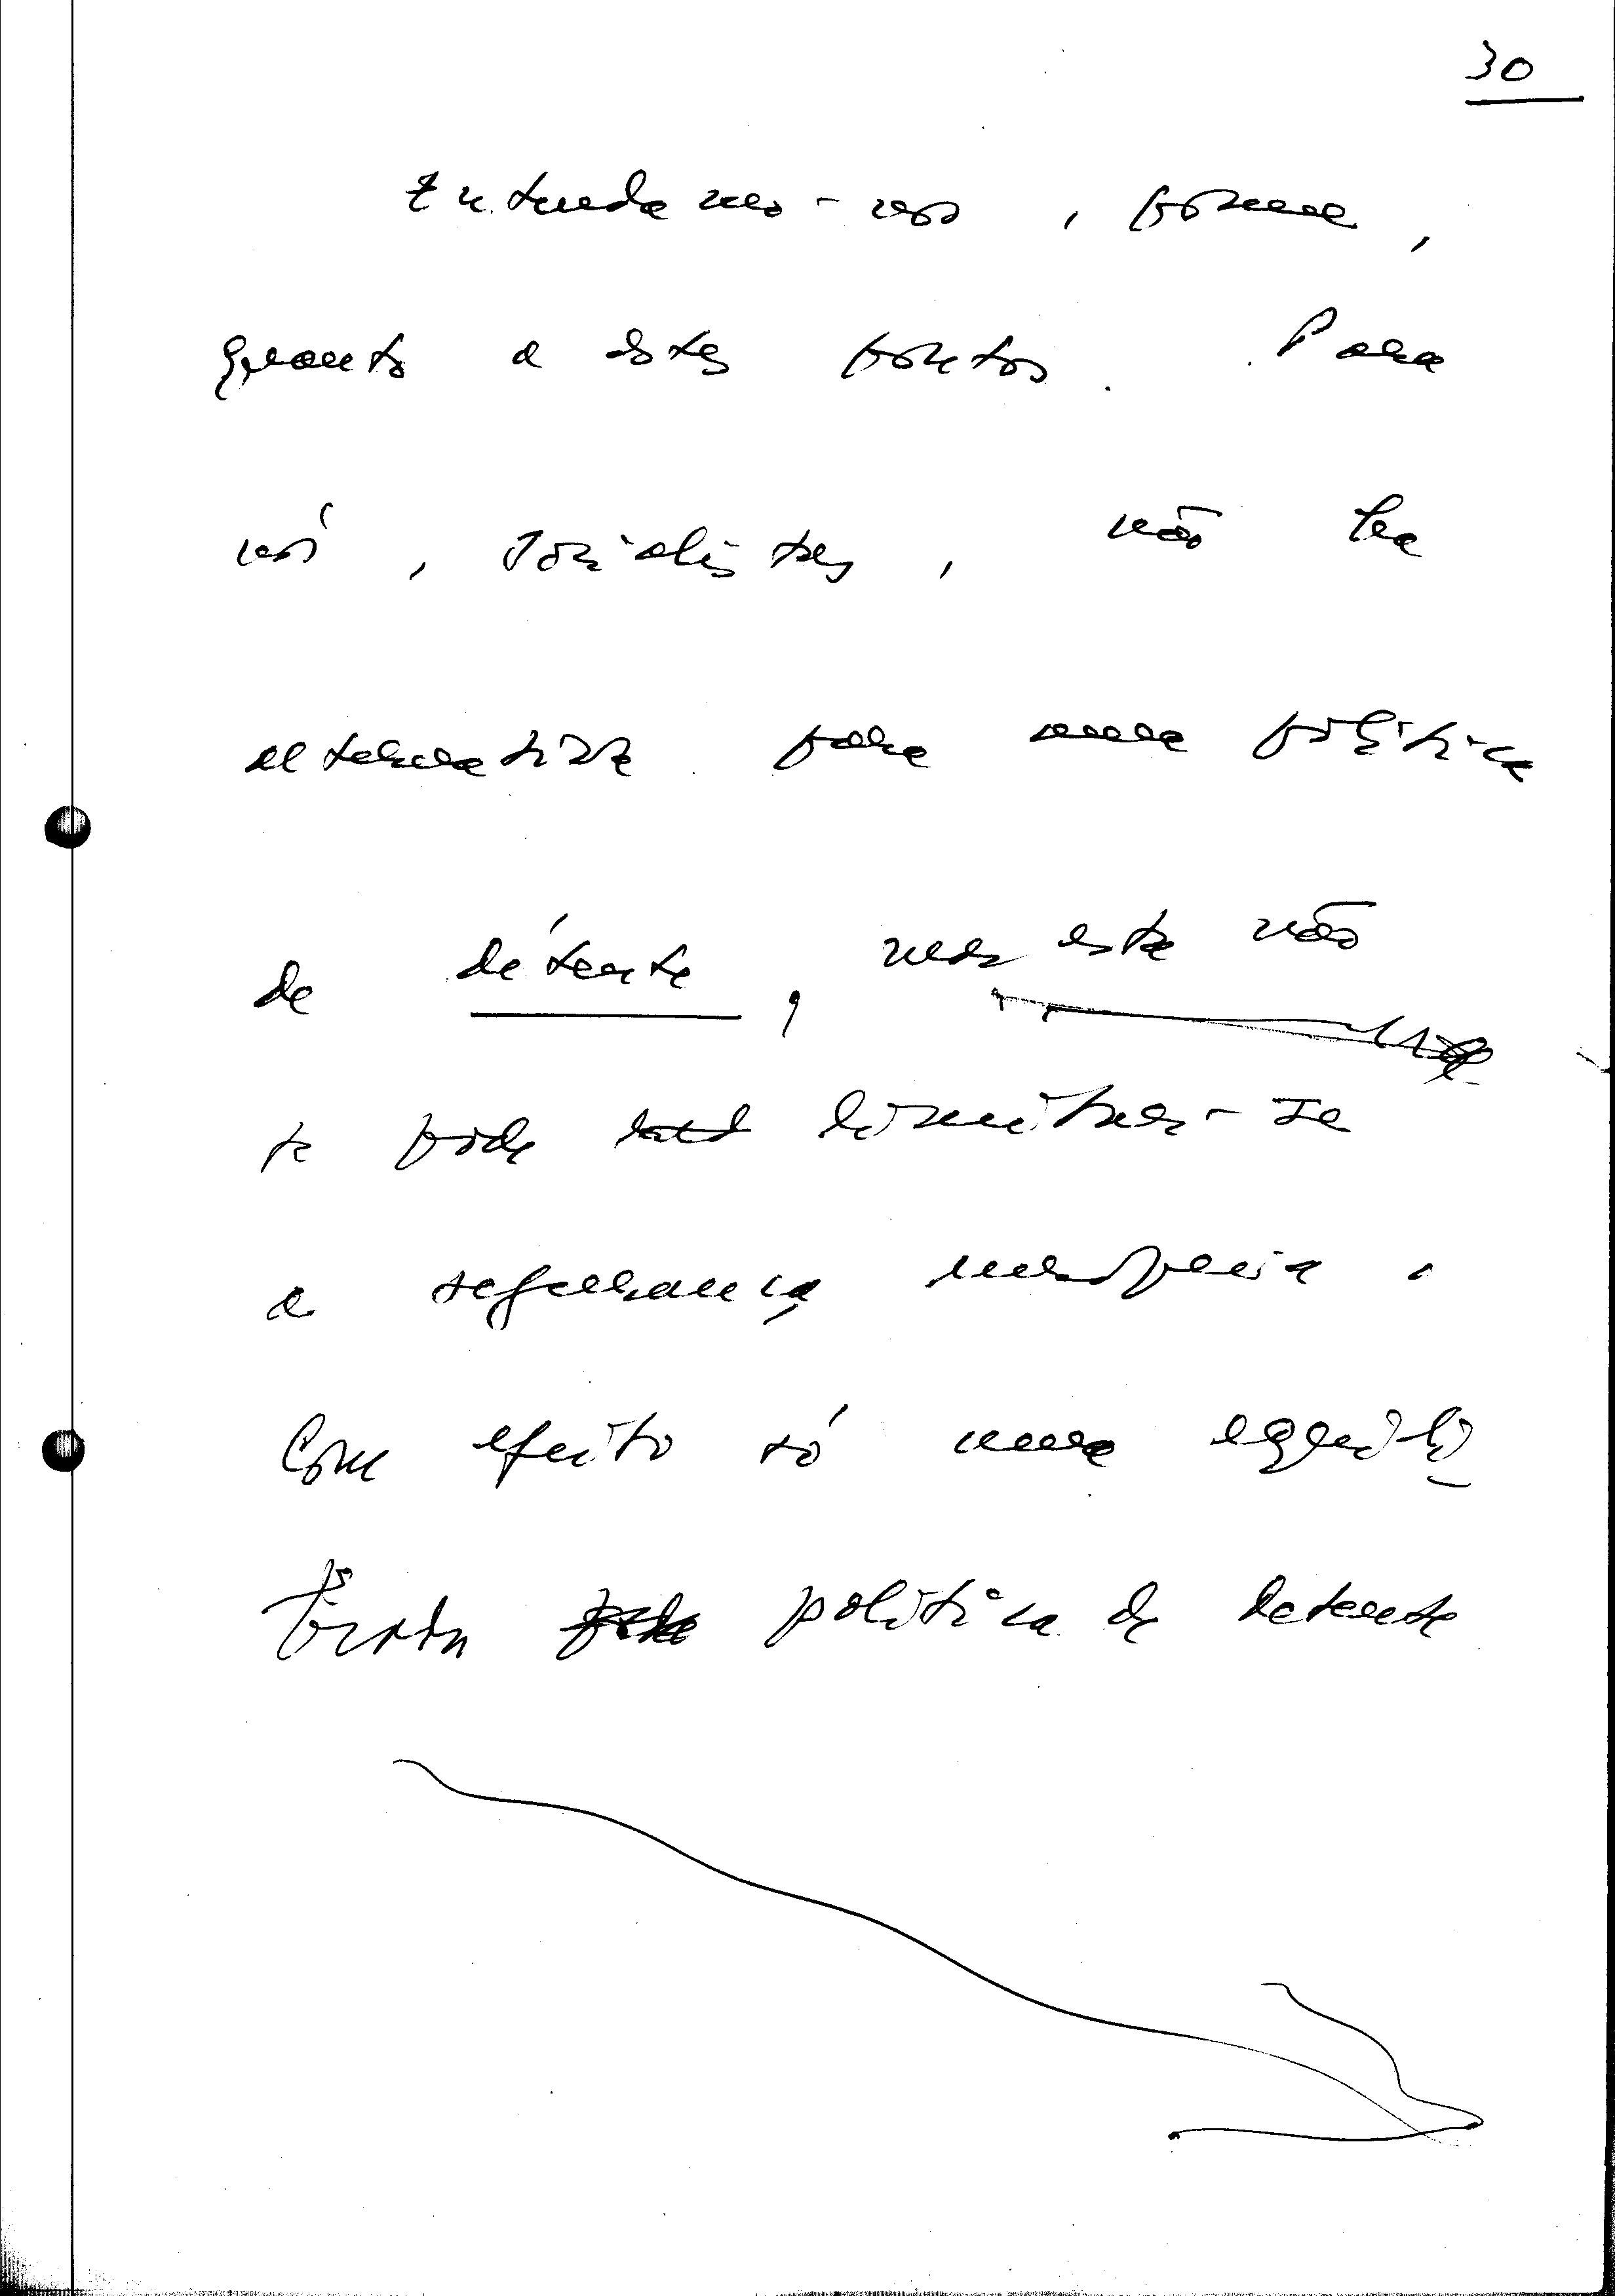 30
Entendamo-nos, porém,
quanto a estes pontos. Para
nós, socialistas, não há
alternativa para uma política
de détente, mas esta não
se pode limitar-se
a segurança
Com efeito só uma equili
brada política de detente